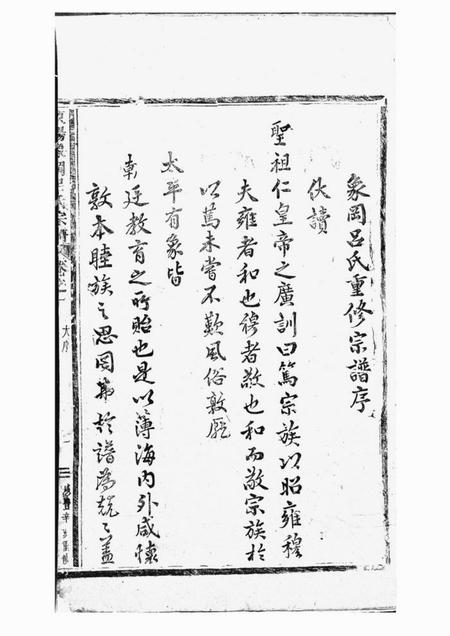 象岡呂氏重修宗譜序
伏讀
聖祖仁皇帝之廣訓曰篤宗族以昭雍穆
夫雍者和也穆者敬也和而敬宗族於
以篤未嘗不歎風俗敦龐
太平有象皆
朝廷教育之所貽也是以薄海內外咸懷
敦本睦族之思罔弗於譜為兢兢蓋
東陽象岡呂氏宗譜